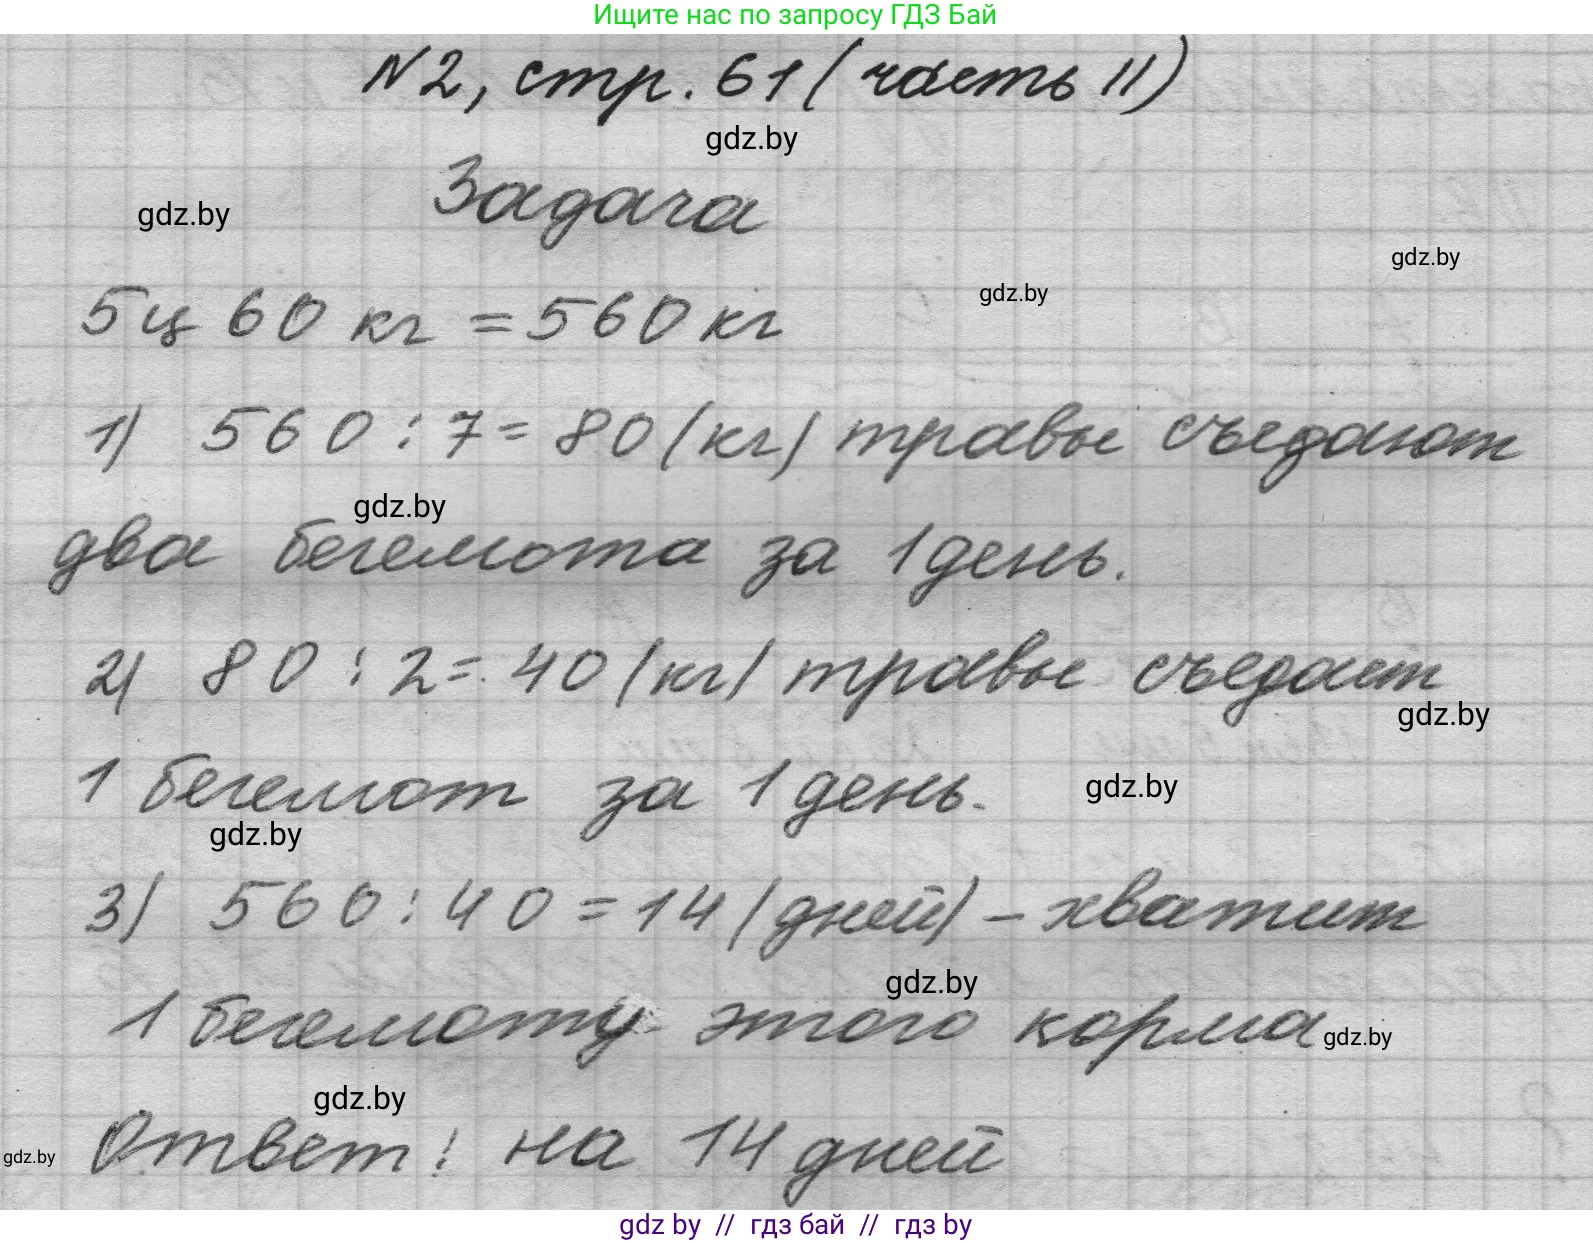 Ищите нас по запросу ГДЗ Бай
N2, стр. 61 (часть II)
gdz.by
Задача
gdz.by
gdz.by
gdz.by
5ц 60 кг = 560 кг
1) 560 : 7 = 80 (кг) травы съедают
gdz.by
два бегемота за 1 день.
2) 80 : 2 = 40 (кг) травы съедает
gdz.by
1 бегемот за 1 день.
gdz.by
gdz.by
3) 560 : 40 = 14 (дней) – хватит
gdz.by
1 бегемоту этого корма
gdz.by
gdz.by
Ответ: на 14 дней
gdz.by
gdz by // гдз бай // гдз by